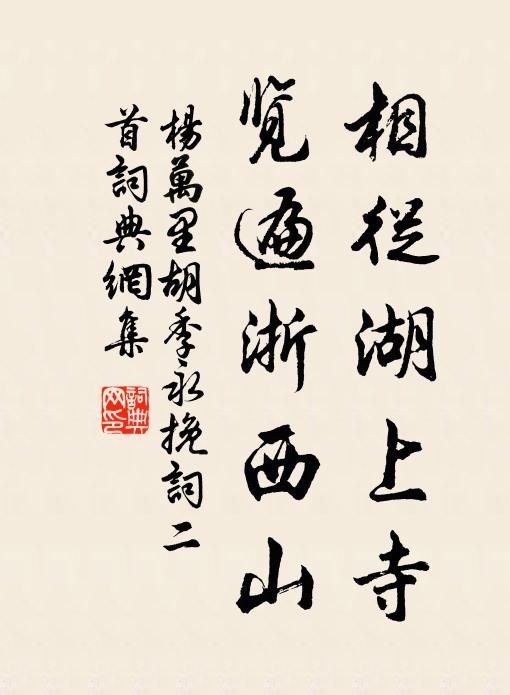 相從湖上寺
覽遍浙西山
楊萬里胡季永挽詞二
首詞典網集
詞典
网印